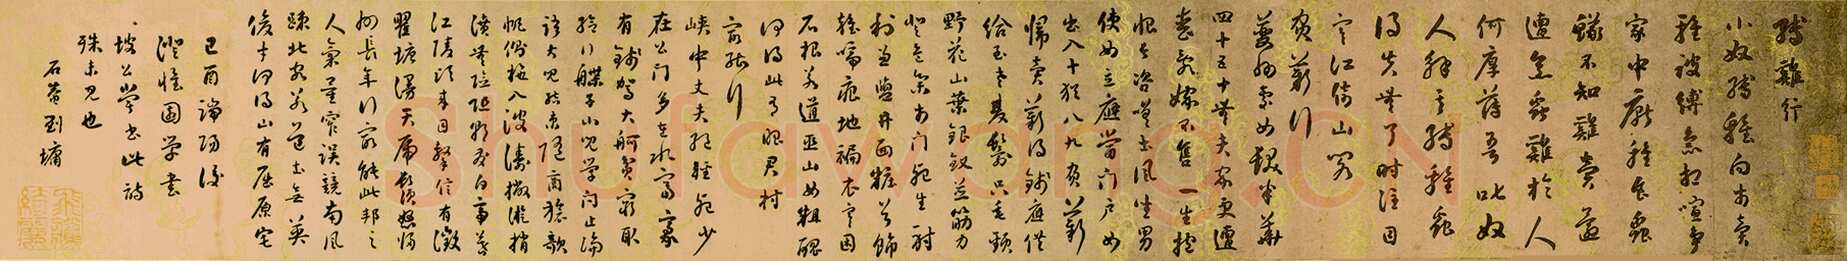 縛雞行
小奴縛雞向市賣
雞被縛急相喧爭
家中厭雞食蟲
蟻不知雞賣還
遭烹蟲雞於人
何厚薄吾叱奴
人解其縛雞蟲
得失無了時注目
寒江倚山閣
負薪行
夔州處女髮半華
四十五十無夫家更遭
喪亂嫁不售一生抱
恨長咨嗟土風坐男
使女立應當門戶女
出入十猶八九負薪
歸賣薪得錢應供
給至老雙鬟只垂頸
野花山葉銀釵並筋力
登危集市門死生射
利兼鹽井面粧首飾
雜啼痕地褊衣寒困
石根若道巫山女粗醜
何得此有昭君村
最能行
峽中丈夫絕輕死少
在公門多在水富豪
有錢駕大舸貧窮取
給行艓子小兒學問止論
語大兒結束隨商旅欹
帆側柁入波濤撇漩捎
濆無險阻朝發白帝暮
江陵頃來目擊信有徵
瞿塘漫天虎鬚怒歸
州長年行最能此邦之
人氣量窄誤競南風
疎北客若道士無英
俊才何得山有屈原宅
己酉端陽後
澄懷園學書
坡公嘗書此詩
殊未見也
石菴劉墉
Shufawang.CN